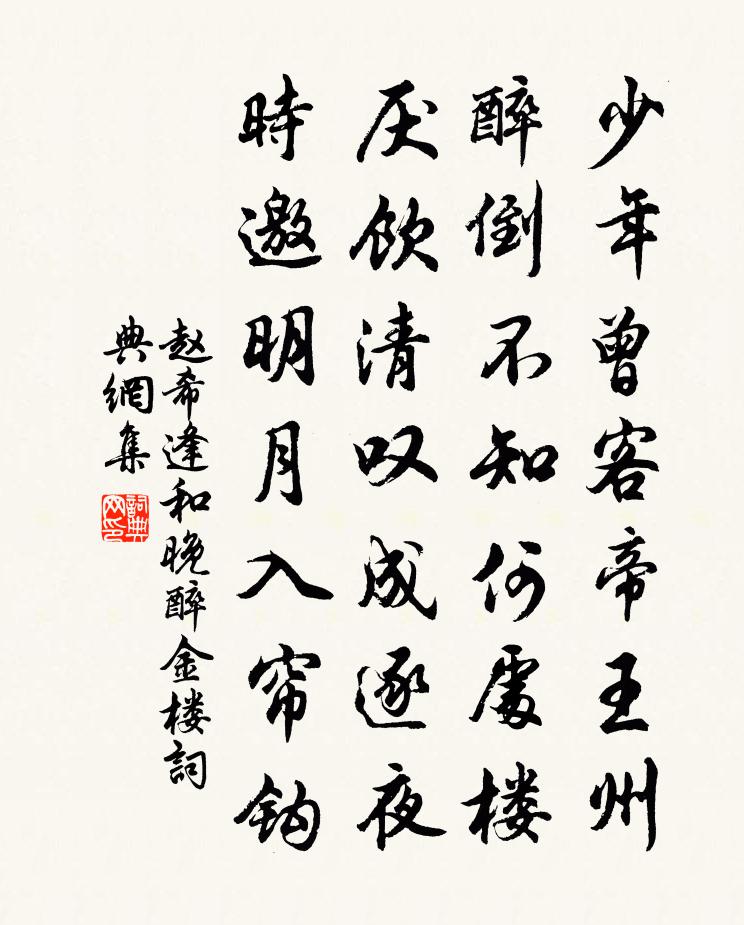 少年曾客帝王州
醉倒不知何處楼
厌饮清叹成逐夜
時邀明月入帘钩
赵希逢和晚醉金楼詞
典網集
詞典網印